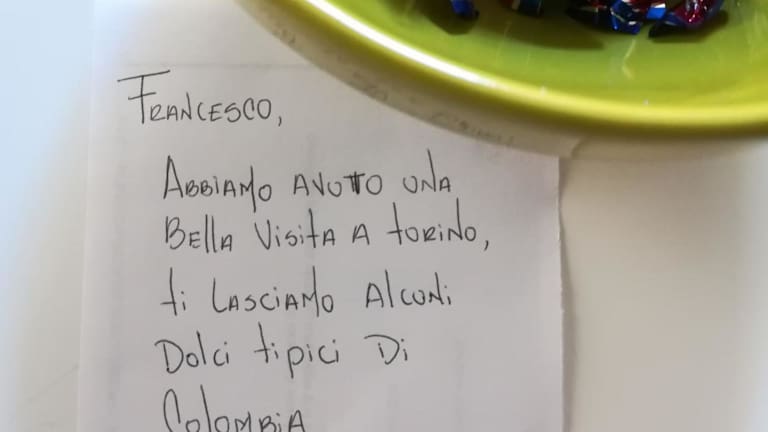 Francesco,
Abbiamo avuto una
Bella visita a torino,
ti lasciamo alcuni
Dolci tipici Di
Colombia